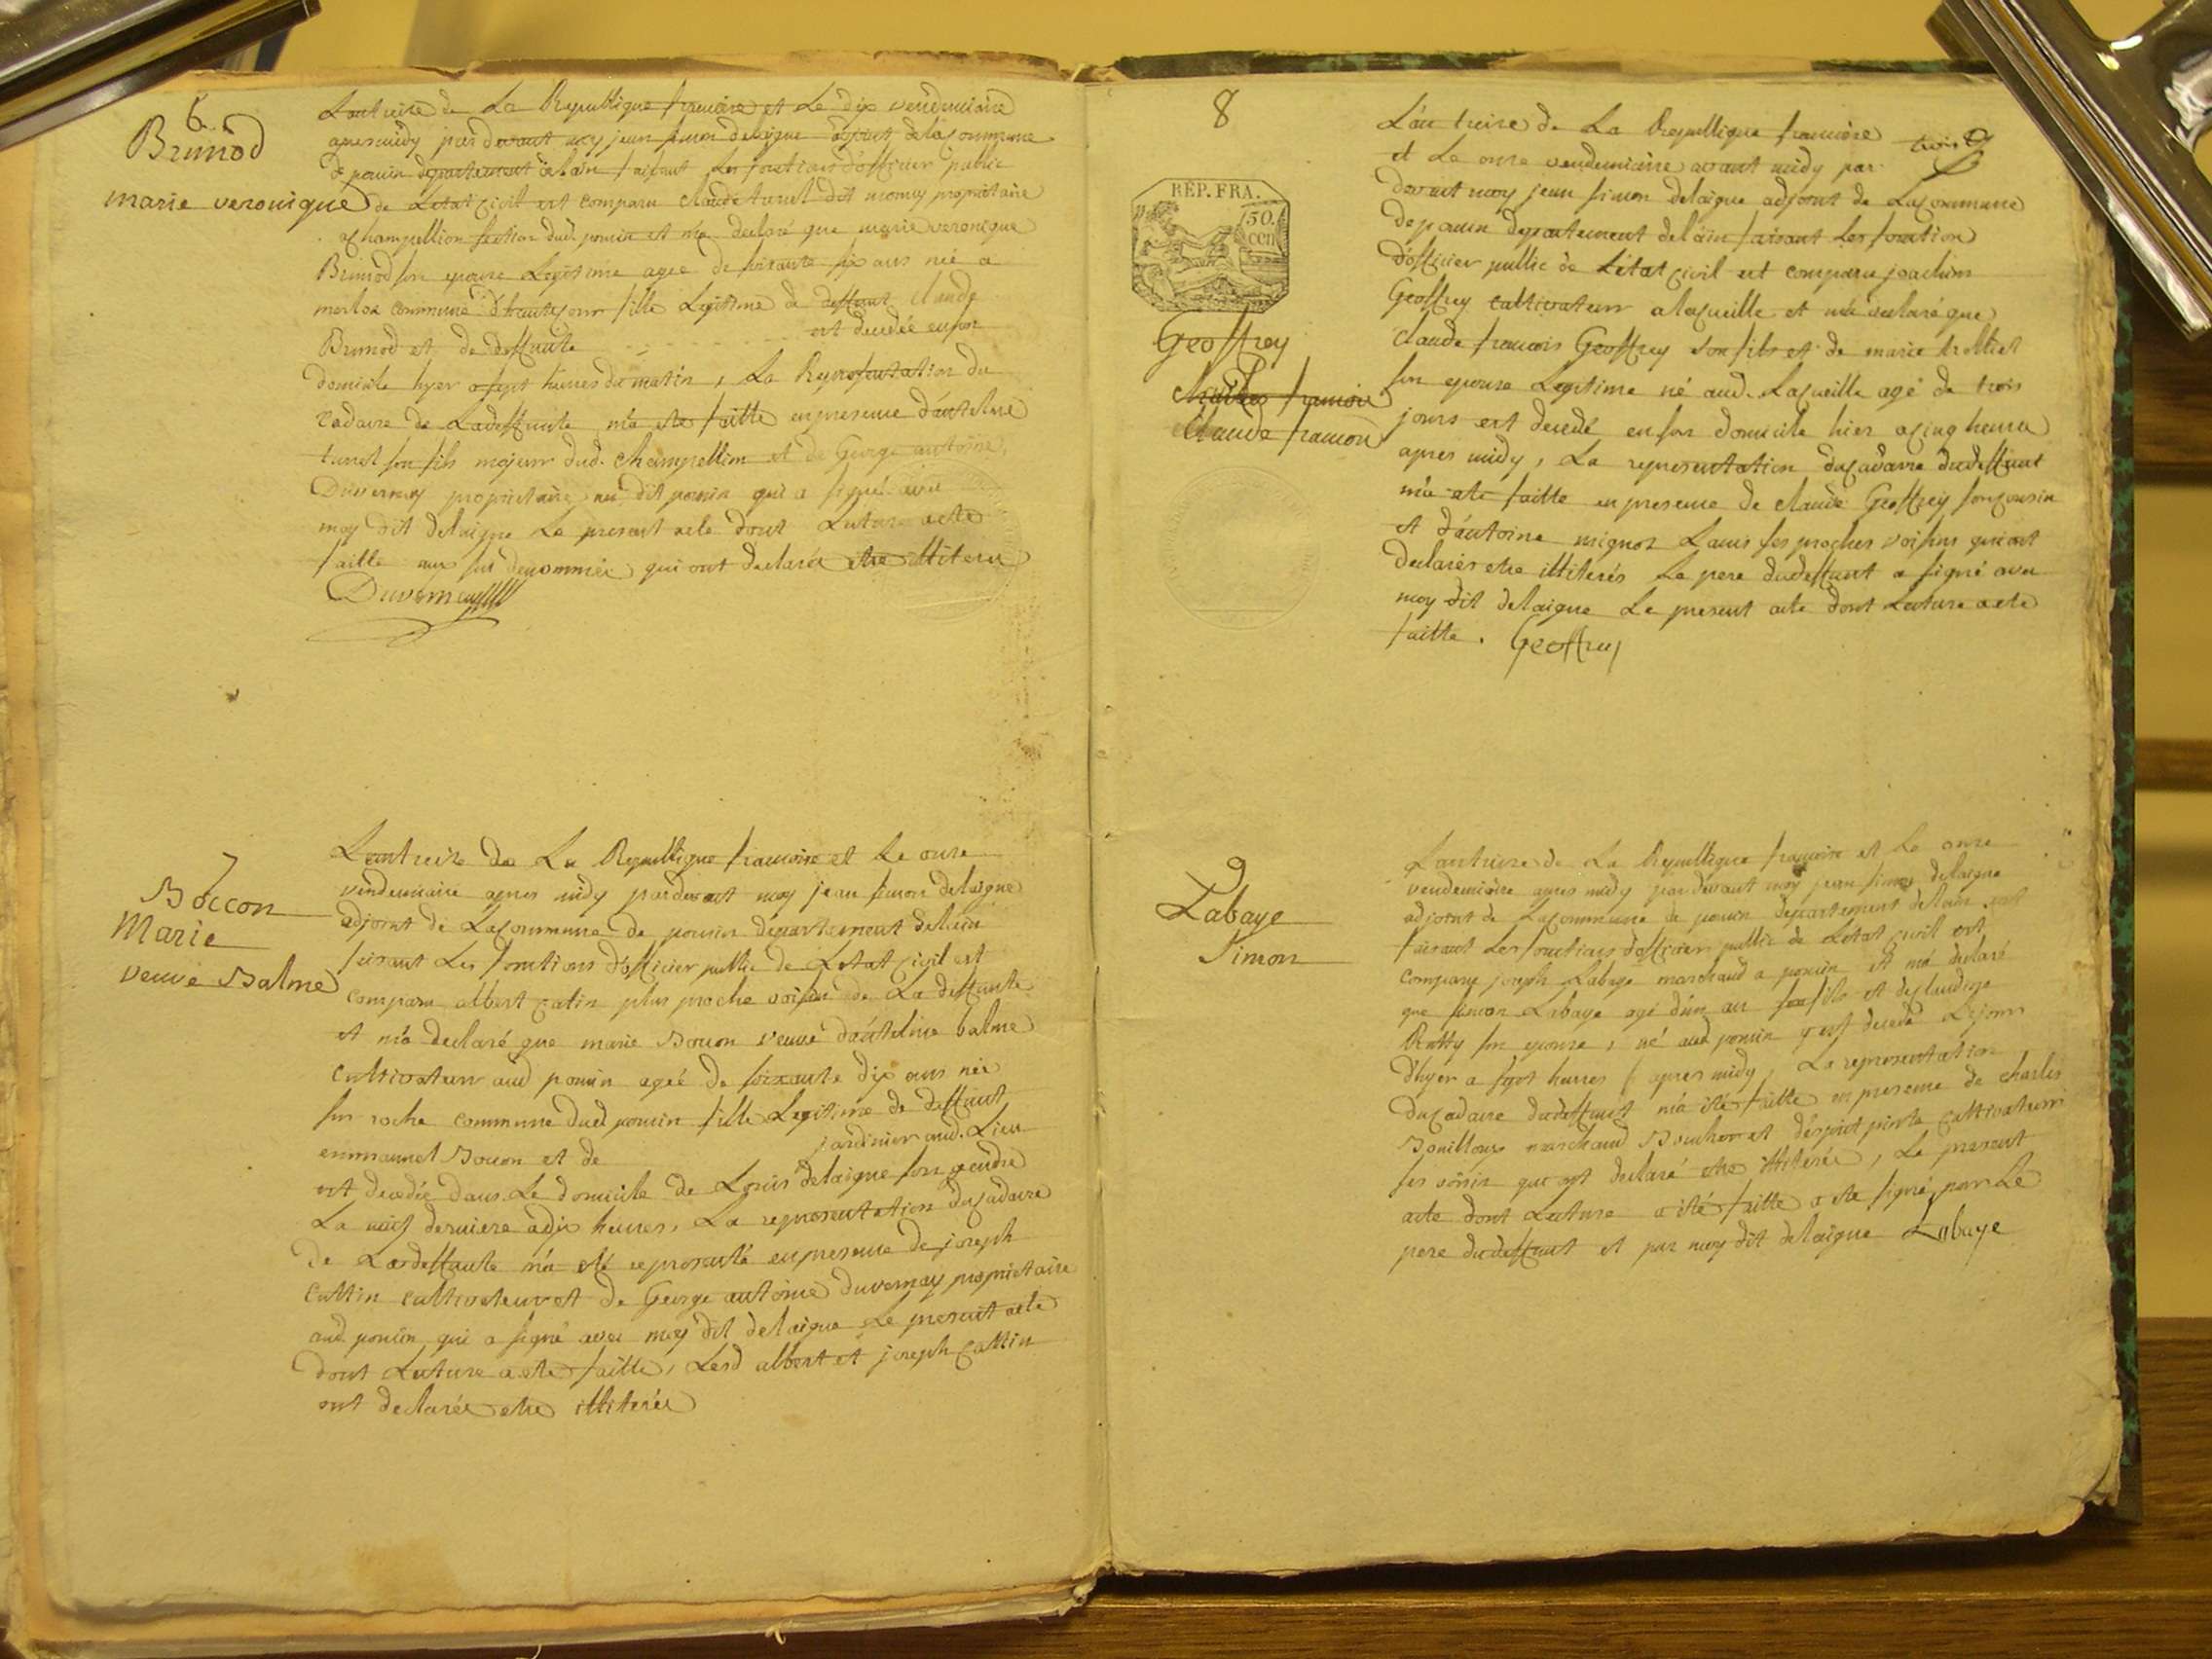 6
Brunod
marie veronique
Lantreize de La Republique francoise et Le dix vendemiaire
apres midy par devant moy jean simon delaigne adjoint de la commune
de poncin departement de lain faisant Les fonctions d'officier public
de Letat civil est comparu claude turrel dit momy propriétaire
a champellion section dud. poncin et m'a declaré que marie veronique
Brunod son epouse Legitime agee de soixante six ans née a
commune d'hautecour fille Legitime de deffunt claude
Brunod et de deffunte est decedée en son
domicile hyer a sept heures du matin, La Representation du
Cadavre de Ladeffunte m'a ete faitte en presence d'antelme
turrel son fils majeur dud. champellion et de George antoine
Duvernay propriétaire au dit poncin qui a signé avec
moy dit delaigne Le present acte dont Lecture a ete
faitte aux sus denommés qui ont declarés etre illiteres
Duvernay
7
Boccon
Marie
veuve Balme
Lantreize de La Republique francoise et Le onze
vendemiaire apres midy pardevant moy jean simon delaigne
adjoint de La commune de poncin departement de lain
faisant Les fonctions d'officier public de Letat civil est
comparu albert catin plus proche voisin de La deffunte
et m'a declaré que marie Bocon veuve d'antelme balme
Cultivateur aud poncin ageé de soixante dix ans née
sur roche commune dud poncin fille Legitime de deffunt
emmanuel Bocon et de jardinier aud. Lieu
est decedée dans Le domicile de Louis delaigne son gendre
La nuit derniere a dix heures, La representation du cadavre
de La deffunte m'a eté representé en presence de joseph
Cattin cultivateur et de George antoine duvernay propriétaire
aud poncin qui a signé avec moy dit delaigne Le present acte
dont Lecture a ete faitte, Lesd albert et joseph Cattin
ont declarés etre illiterés
8
REP. FRA.
50.
cen
Geoffrey
Charles francois
Claude francois
L'an treize de La Republique francoise
trois
et Le onze vendemiaire avant midy par
devant moy jean simon delaigne adjoint de La commune
de poncin departement de lain faisant Les fonction
d'officier public de L'état civil est comparu joachim
Geoffrey cultivateur a La cueille et m'a declaré que
Claude francois Geoffrey son fils et de marie trolliet
son epouse Legitime né aud. La cueille agé de trois
jours est decedé en son domicile hier a cinq heures
apres midy, La representation du cadavre dudeffunt
m'a ete faitte en presence de claude Geoffrey son cousin
et d'antoine mignot Louis ses proches voisins qui ont
declarés etre illiterés Le pere dudeffunt a signé avec
moy dit delaigne Le present acte dont Lecture a ete
faitte. Geoffrey
9
Labaye
Simon
Lantreize de La Republique francoise et Le onze
vendemiaire apres midy par devant moy jean simon delaigne
adjoint de La commune de poncin departement de lain
faisant Les fonctions d'officier public de Letat civil est
comparu joseph Labaye marchand a poncin et m'a declaré
que simon Labaye agé d'un an son fils et de claudine
Rutty son epouse, né aud poncin y est decedé Le jour
d'hyer a sept heures apres midy, La representation
du cadavre dudeffunt m'a été faitte en presence de charles
Bouilloux marchand Boucher et cultivateur
ses voisin qui ont declaré etre illiterés, Le present
acte dont Lecture a été faitte a ete signé par Le
pere dudeffunt et par moy dit delaigne Labaye